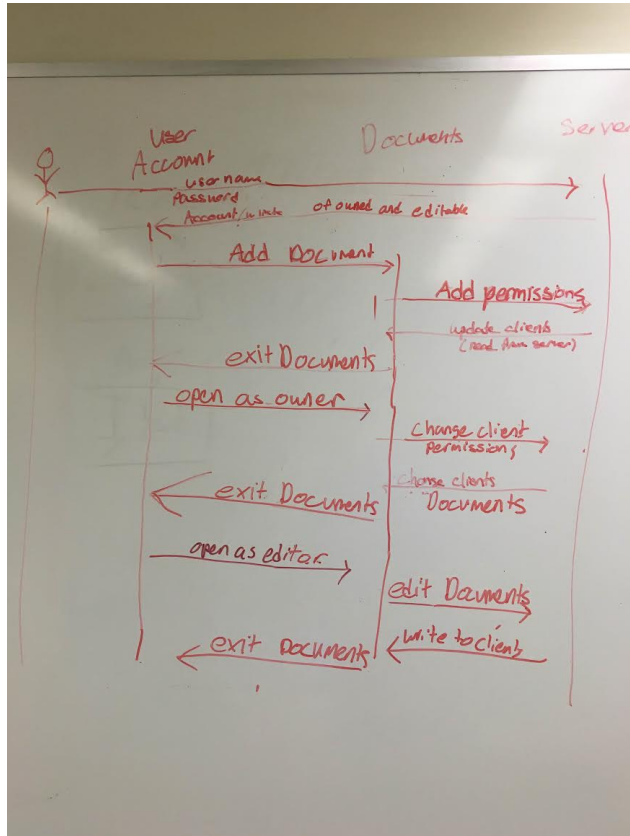 User
Account
Documents
Server
username
Password
Account of owned and editable
Add Document
Add permissions
update clients
(read from server)
exit Documents
open as owner
Change client
permissions
change clients
Documents
exit Documents
open as editor
edit Documents
write to clients
exit Documents